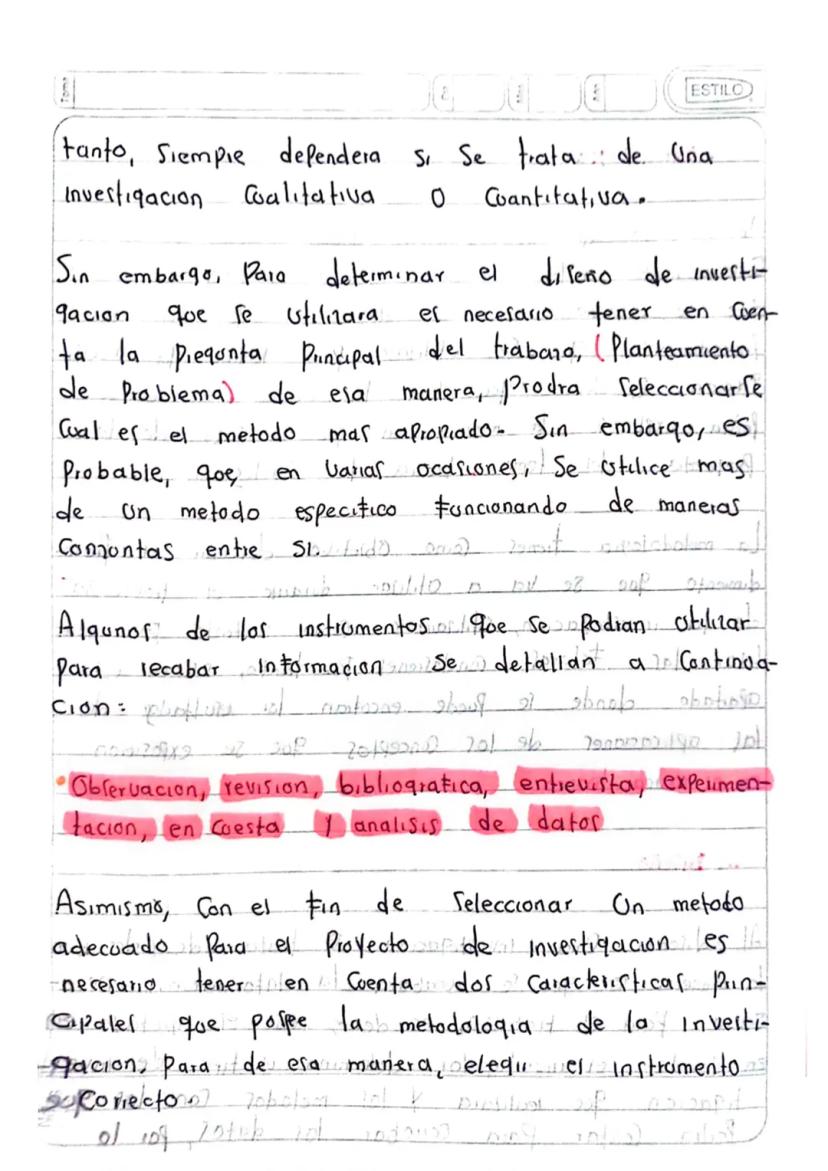 ESTILO
tanto, siempre dependera si se trata de una
investigacion Cualitativa o Cuantitativa.
Sin embargo, para determinar el diseño de investi-
gacion que se utilizara es necesario tener en Cuen-
ta la pregunta principal del trabajo, (Planteamiento
de problema) de esa manera, prodra seleccionarse
Cual es el metodo mas apropiado. Sin embargo, es
probable, que, en varias ocasiones, se utilice mas
de un metodo especifico funcionando de maneras
Conjuntas entre si.
Algunos de los instrumentos que se podran utilizar
para recabar informacion se detallan a Continua-
cion:
• Observacion, revision, bibliografica, entrevista, experimen-
tacion, en cuesta y analisis de datos
Asimismo, con el fin de seleccionar un metodo
adecuado para el proyecto de investigacion es
necesario tener en cuenta dos caracteristicas prin-
cipales que posee la metodologia de la investi-
gacion, para de esa manera, elegir el instrumento
Correcto